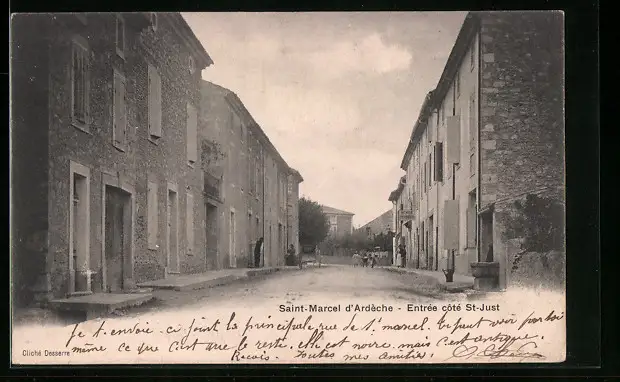 Saint-Marcel d'Ardèche - Entrée côté St-Just
je t'envoie ci joint la principale rue de St. marcel. tu peut voir par toi
même ce que c'est que le reste, elle est noire mais c'est antique.
Cliché Desserre
Reçois toutes mes amitiés.